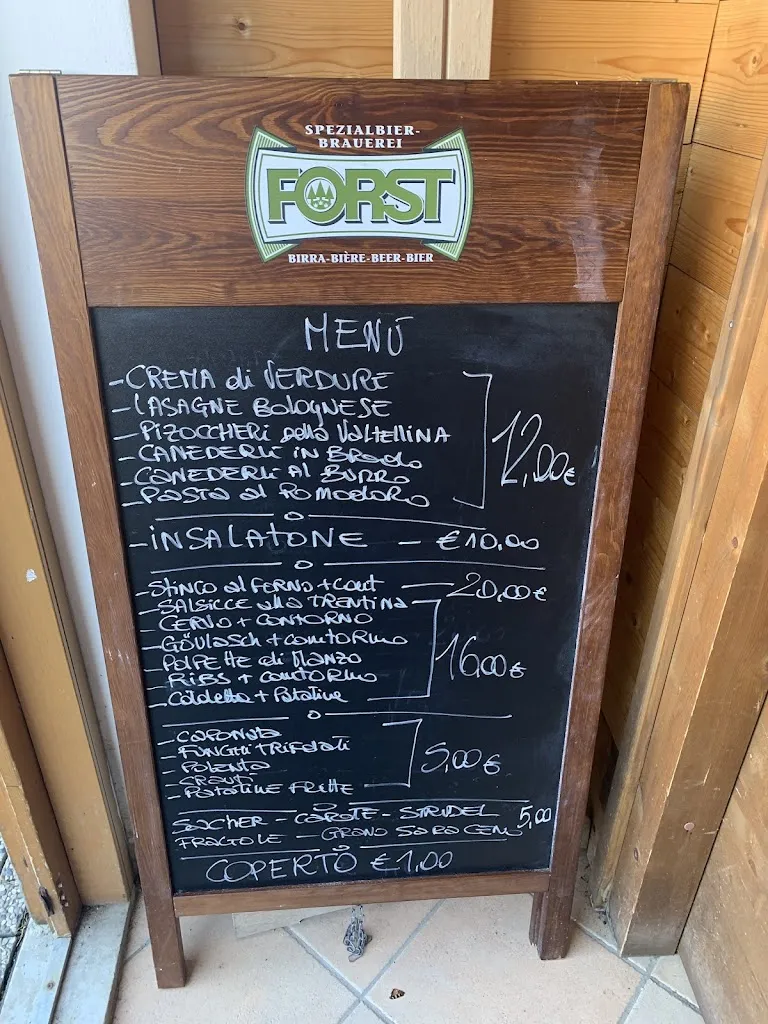 SPEZIALBIER-
BRAUEREI
FORST
BIRRA-BIÈRE-BEER-BIER
MENÚ
- CREMA di VERDURE
- LASAGNE BOLOGNESE
- PIZOCCHERI della VALTELLINA
- CANEDERLI IN BRODO
- CANEDERLI AL BURRO
- PASTA al POMODORO
12,00€
- INSALATONE - €10,00
- STINCO al FORNO + CONT — 20,00€
- SALSICCE alla TRENTINA
- CERVO + CONTORNO
- GÖULASCH + CONTORNO
- POLPETTE di MANZO
- RIBS + CONTORNO
- COTOLETTA + PATATINE
16,00€
- CAPONATA
- FUNGHI TRIFOLATI
- POLENTA
- CRAUTI
- PATATINE FRITTE
5,00€
SACHER - CAROTE - STRUDEL 5,00
FRAGOLE - GRANO SARACENO
COPERTO €1,00